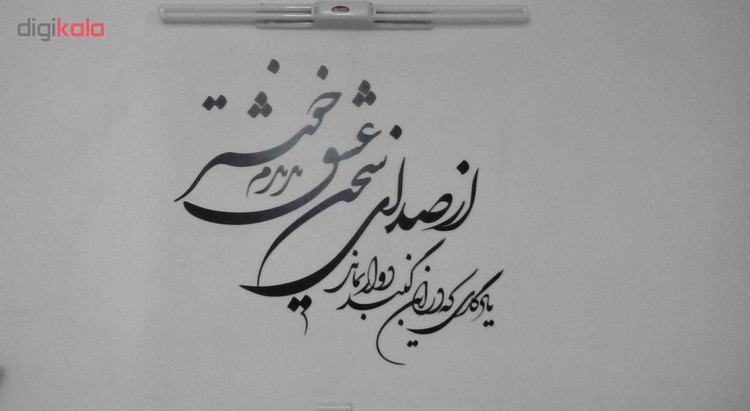 digikala
از صدای سخن عشق ندیدم خوشتر
یادگاری که در این گنبد دوار بماند